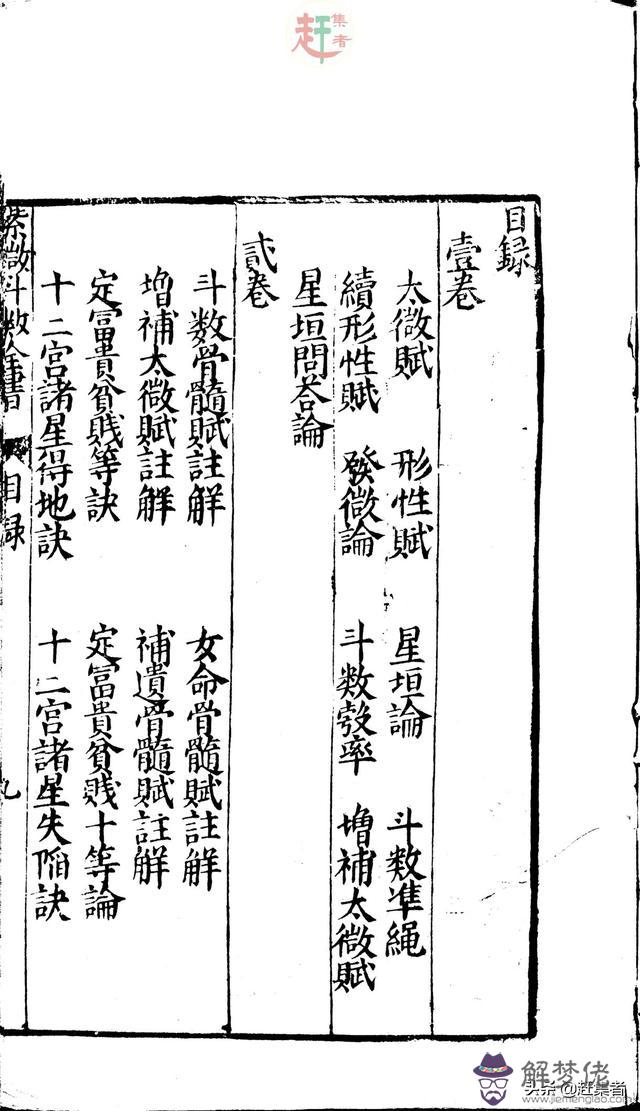 赶集者
目録
壹卷
太微賦 形性賦 星垣論 斗数準繩
續形性賦 發微論 斗数彀率 增補太微賦
星垣問荅論
貳卷
斗數骨髓賦註解 女命骨髓賦註解
增補太微賦註解 補遺骨髓賦註解
定冨貴貧賎等訣 定冨貴貧賎十等論
十二宫諸星得地訣 十二宫諸星失陷訣
紫微斗数全書 目録 九
解梦佬
头条@赶集者
www.jiemenglao.com